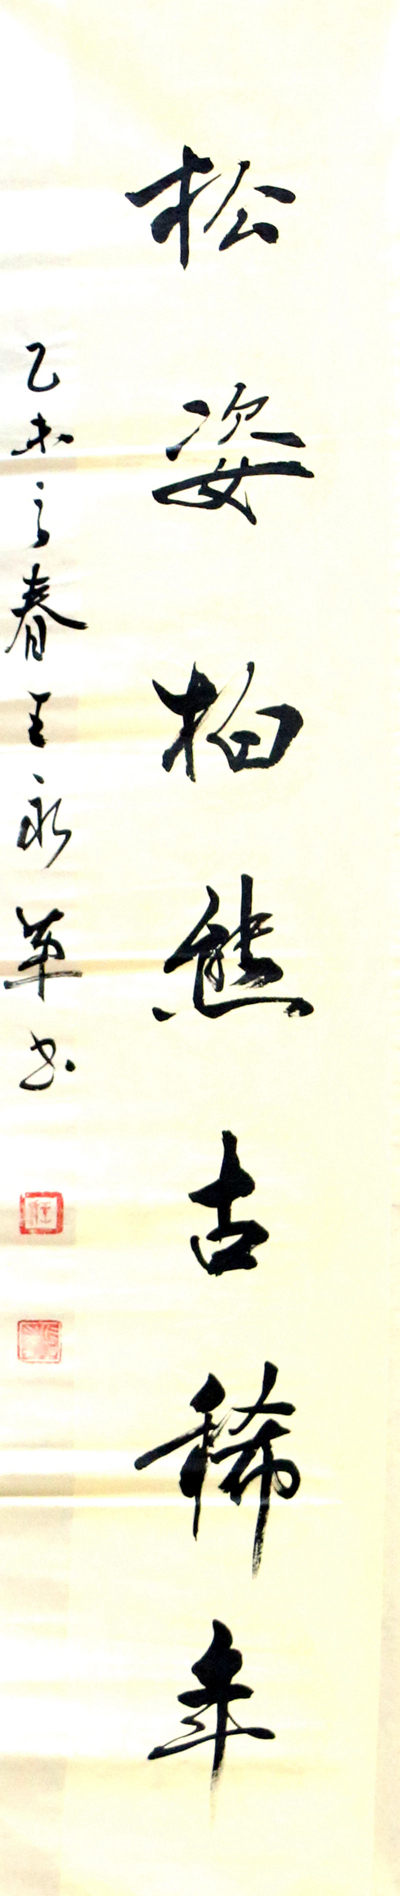 松姿柏態古稀年
乙未之春王永革书